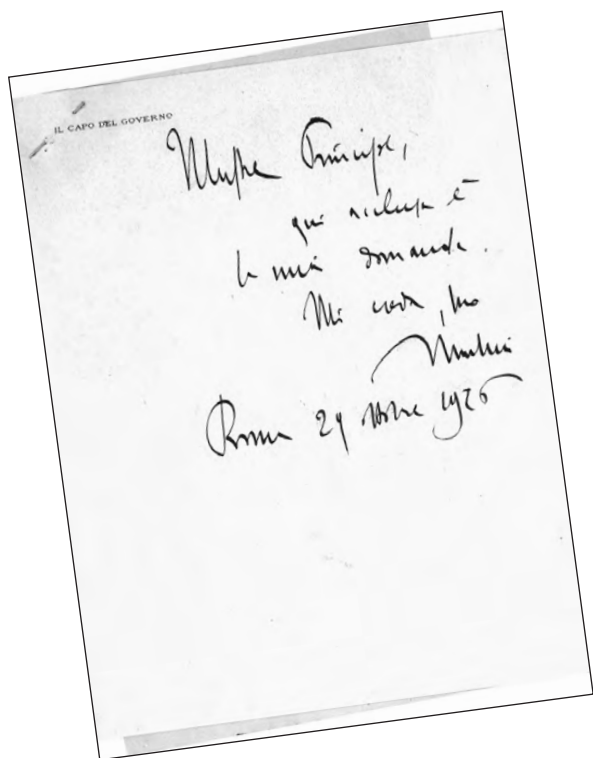 IL CAPO DEL GOVERNO
Illustre Principe,
qui acclusa è
la mia domanda.
Mi creda, suo
Mussolini
Roma 29 ottobre 1926